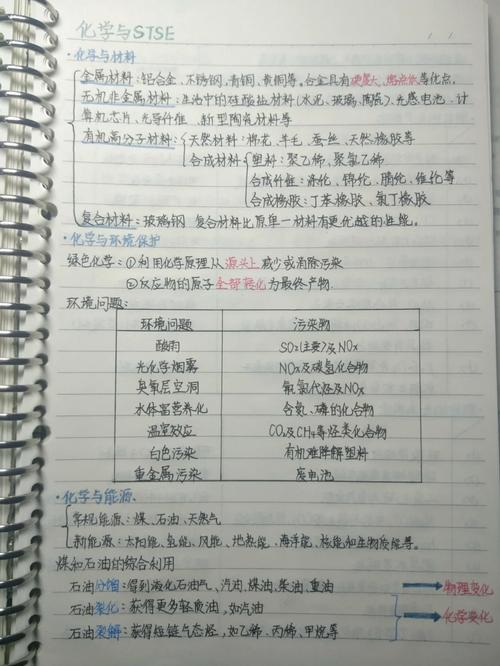 化学与STSE
·化学与材料
金属材料:铝合金、不锈钢、青铜、黄铜等。合金具有硬度大、熔点低等优点。
无机非金属材料:生活中的硅酸盐材料(水泥、玻璃、陶瓷)、光感电池、计
算机芯片、光导纤维、新型陶瓷材料等
有机高分子材料:天然材料:棉花、羊毛、蚕丝、天然橡胶等
合成材料 塑料:聚乙烯、聚氯乙烯
合成纤维:涤纶、锦纶、腈纶、维纶等
合成橡胶:丁苯橡胶、氯丁橡胶
复合材料:玻璃钢 复合材料比原单一材料有更优越的性能。
·化学与环境保护
绿色化学:①利用化学原理从源头上减少或消除污染
②反应物的原子全部转化为最终产物.
环境问题:
环境问题 污染物
酸雨 SO₂(主要)及NOx
光化学烟雾 NOx及碳氢化合物
臭氧层空洞 氟氯代烃及NOx
水体富营养化 含氮、磷的化合物
温室效应 CO₂及CH₄等烃类化合物
白色污染 有机难降解塑料
重金属污染 废电池
·化学与能源、
常规能源:煤、石油、天然气
新能源:太阳能、氢能、风能、地热能、海洋能、核能和生物质能等。
煤和石油的综合利用
石油分馏:得到液化石油气、汽油、煤油、柴油、重油 物理变化
石油裂化:获得更多轻质油,如汽油
化学变化
石油裂解:获得短链气态烃,如乙烯、丙烯、甲烷等